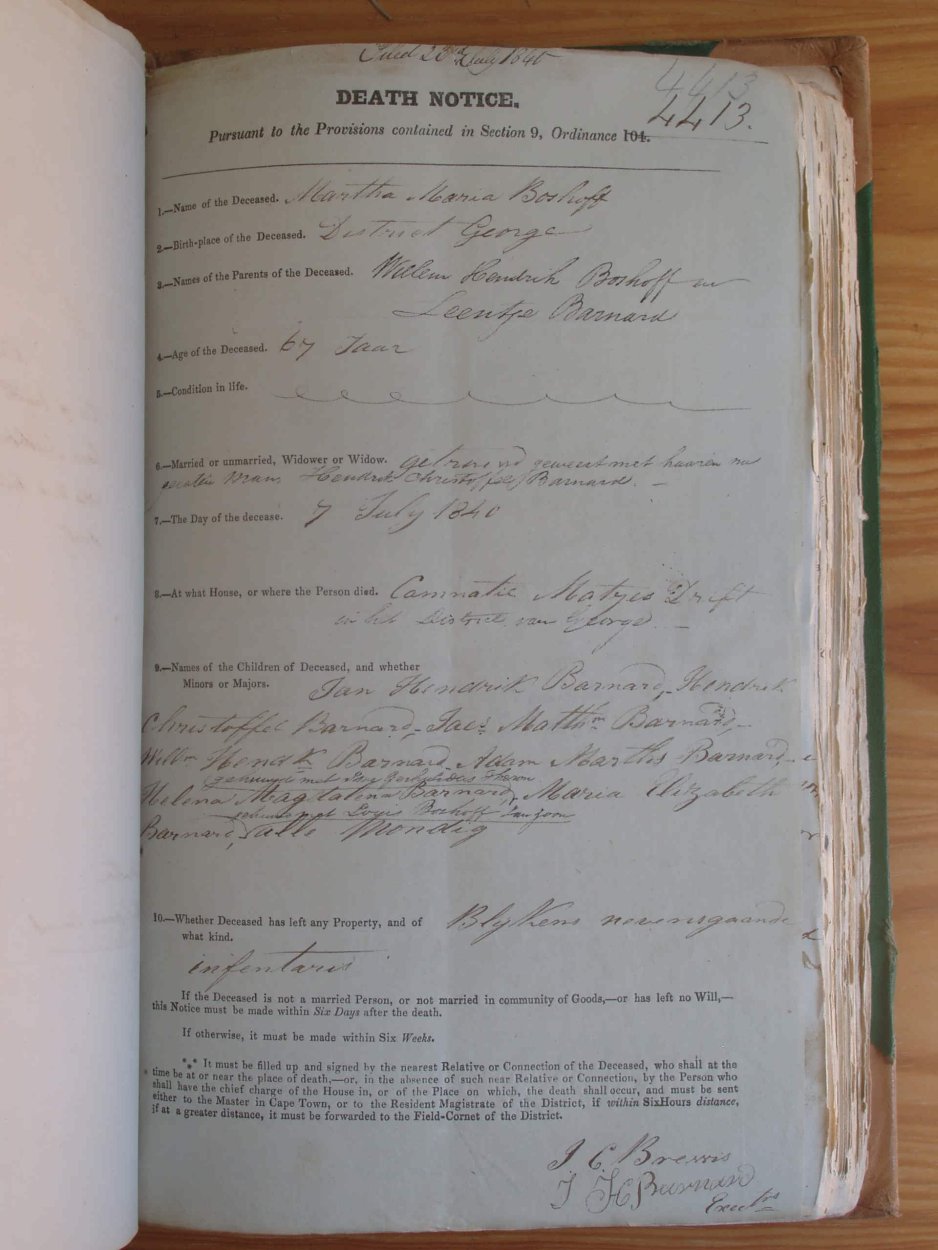 Filed 20th July 1840
4413
4413.
DEATH NOTICE.
Pursuant to the Provisions contained in Section 9, Ordinance 104.
1.—Name of the Deceased. Martha Maria Boshoff
2.—Birth-place of the Deceased. District George
3.—Names of the Parents of the Deceased. Willem Hendrik Boshoff en
Leentje Barnard
4.—Age of the Deceased. 67 Jaar
5.—Condition in life.
6.—Married or unmarried, Widower or Widow. getrouwd geweest met haaren nu
Hendrik Christoffel Barnard. —
7.—The Day of the decease. 7 July 1840
8.—At what House, or where the Person died. Camnatie Matyes Drift
in het District van George. —
9.—Names of the Children of Deceased, and whether
Minors or Majors. Jan Hendrik Barnard, Hendrik
Christoffel Barnard, Jacs. Matths. Barnard,
Willm Hendk Barnard, Adam Marthis Barnard,
gehuwd met Theron
Helena Magdalena Barnard, Maria Elizabeth
gehuwd met Louis Boshoff
Barnard, alle Mondig
10.—Whether Deceased has left any Property, and of
what kind. Blykens nevensgaande
infentaris
If the Deceased is not a married Person, or not married in community of Goods,—or has left no Will,—
this Notice must be made within Six Days after the death.
If otherwise, it must be made within Six Weeks.
*** It must be filled up and signed by the nearest Relative or Connection of the Deceased, who shall at the
time be at or near the place of death,—or, in the absence of such near Relative or Connection, by the Person who
shall have the chief charge of the House in, or of the Place on which, the death shall occur, and must be sent
either to the Master in Cape Town, or to the Resident Magistrate of the District, if within SixHours distance,
if at a greater distance, it must be forwarded to the Field-Cornet of the District.
J C Brewis
J H Barnard
Execrs